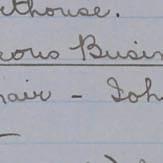 rthouse.
eous Busin
hair - Joh